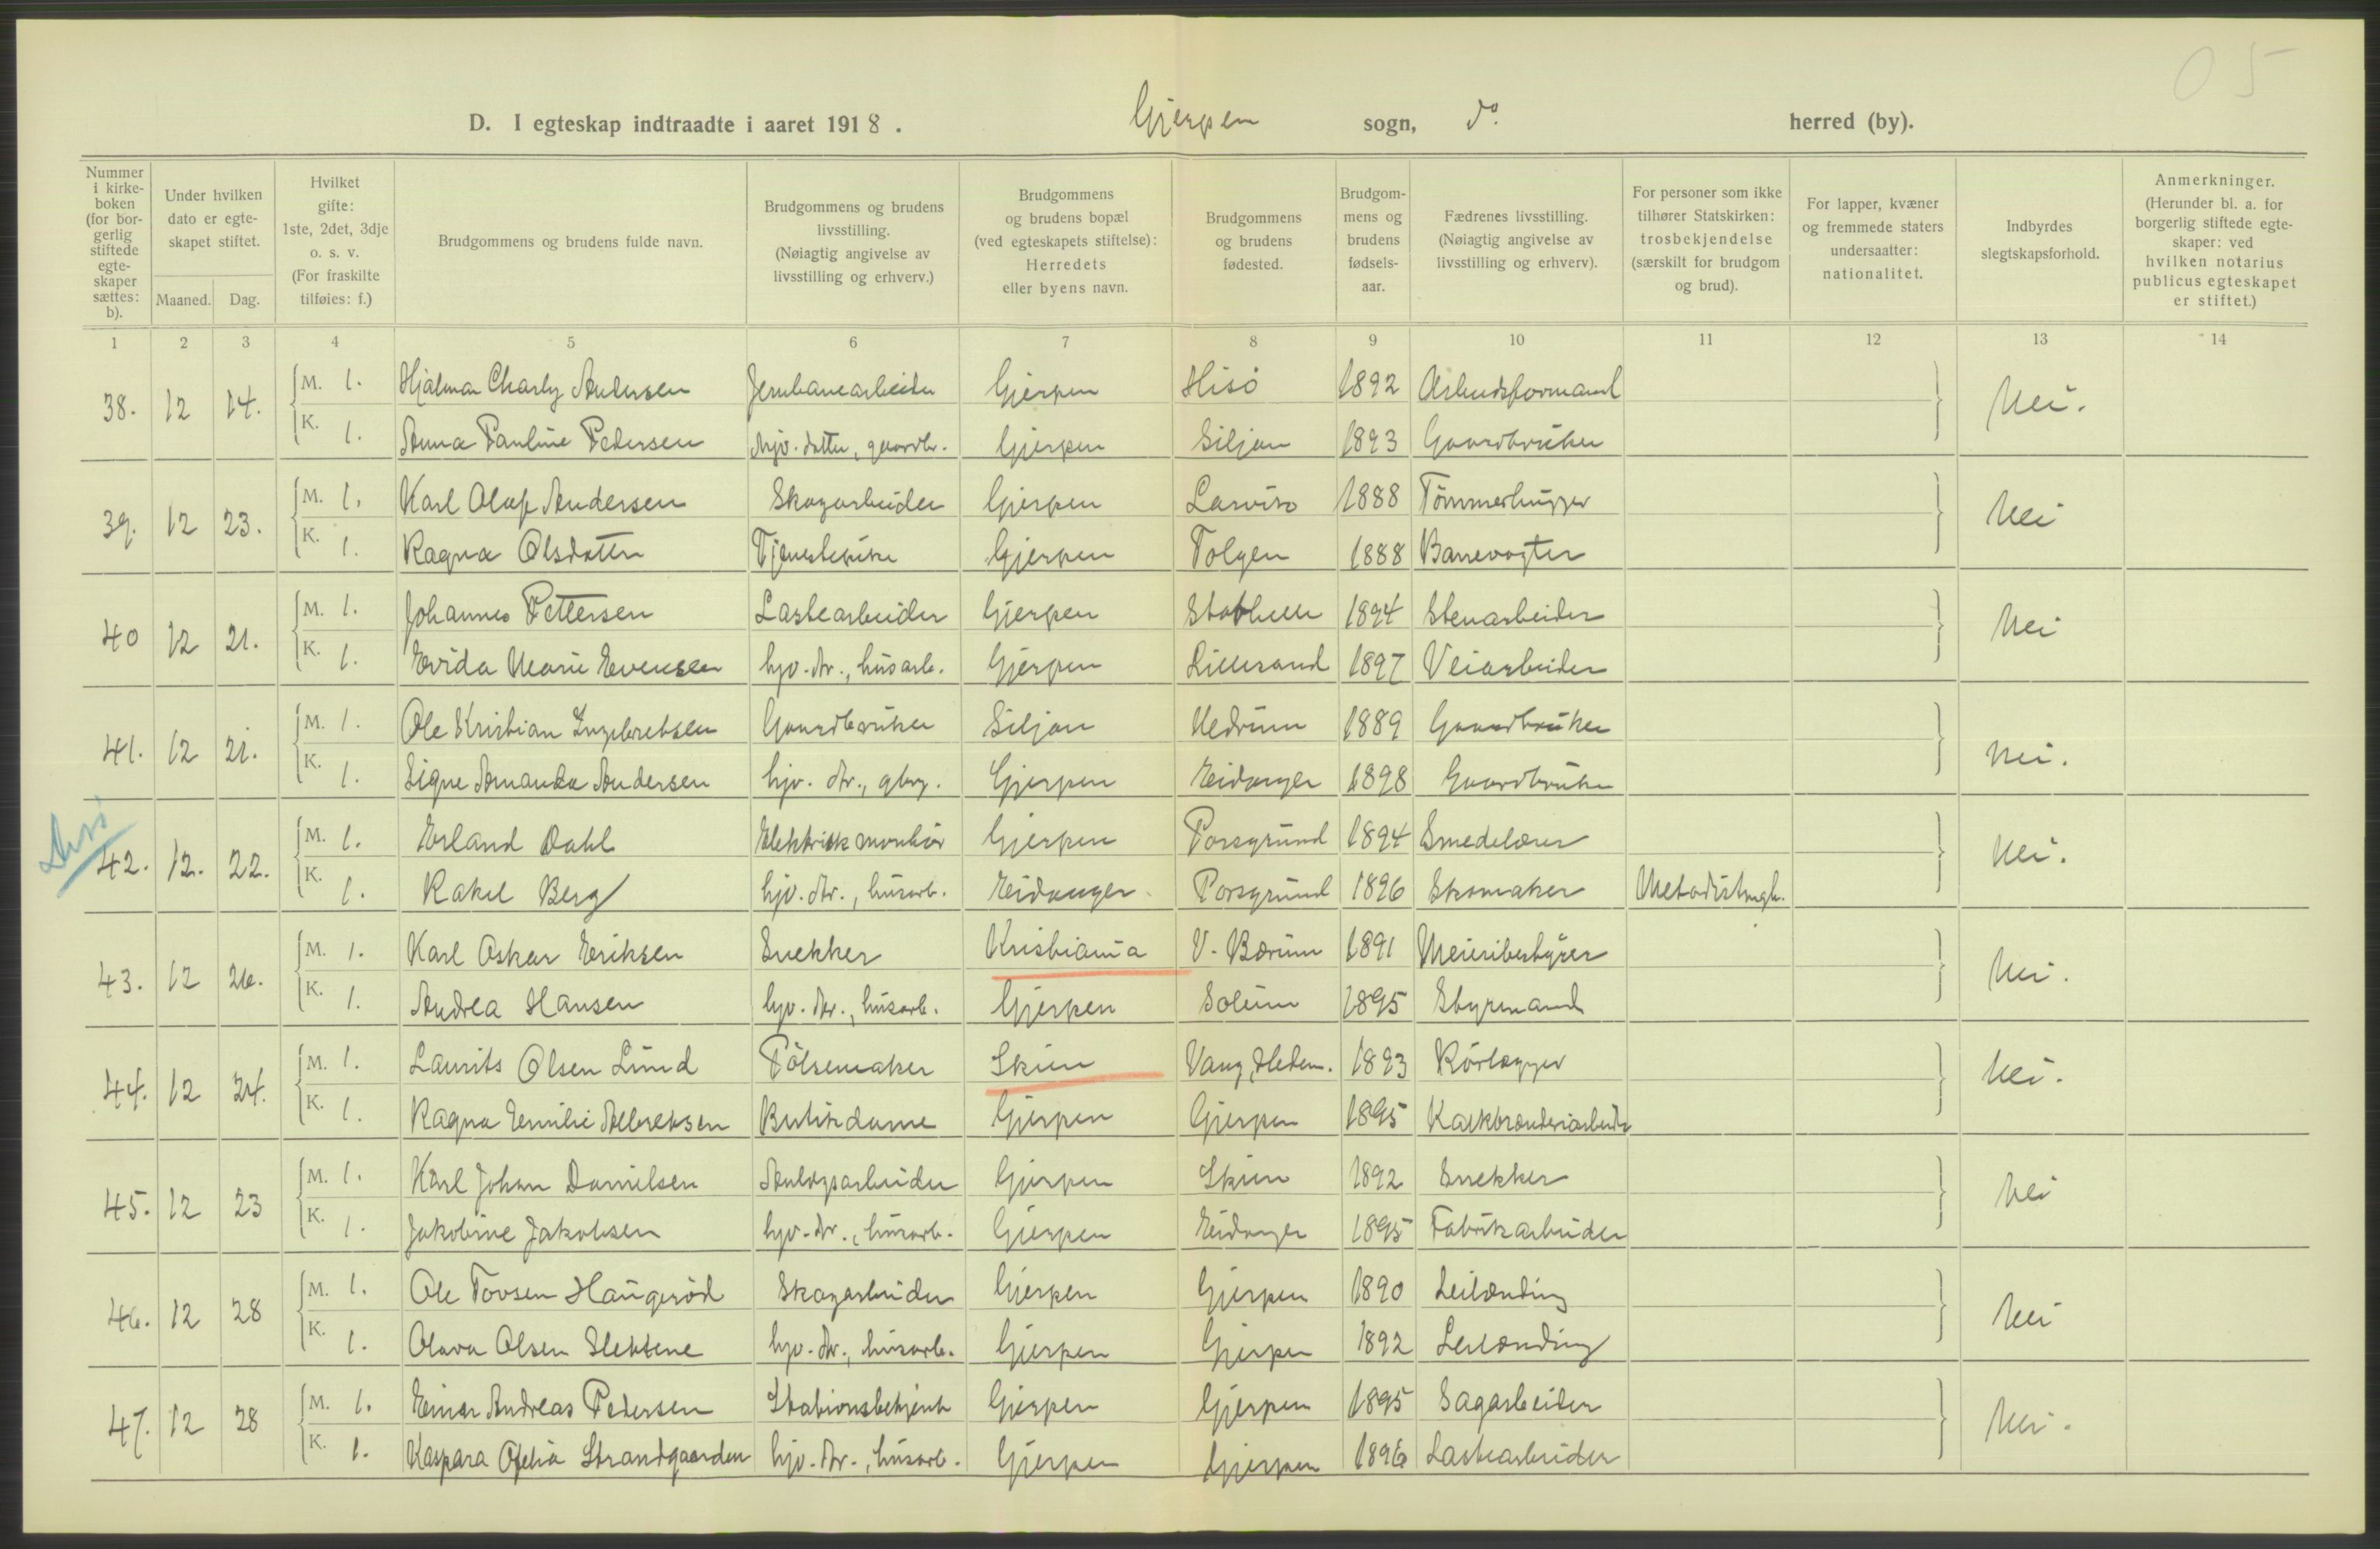 05
D. I egteskap indtraadte i aaret 1918. Gjerpen sogn, do. herred (by).
Nummer i kirke-boken (for bor-gerlig stiftede egte-skaper sættes: b).
Under hvilken dato er egte-skapet stiftet.
Maaned. Dag.
Hvilket gifte: 1ste, 2det, 3dje o. s. v. (For fraskilte tilføies: f.)
Brudgommens og brudens fulde navn.
Brudgommens og brudens livsstilling. (Nøiagtig angivelse av livsstilling og erhverv.)
Brudgommens og brudens bopæl (ved egteskapets stiftelse): Herredets eller byens navn.
Brudgommens og brudens fødested.
Brudgom-mens og brudens fødsels-aar.
Fædrenes livsstilling. (Nøiagtig angivelse av livsstilling og erhverv).
For personer som ikke tilhører Statskirken: trosbekjendelse (særskilt for brudgom og brud).
For lapper, kvæner og fremmede staters undersaatter: nationalitet.
Indbyrdes slegtskapsforhold.
Anmerkninger. (Herunder bl. a. for borgerlig stiftede egte-skaper: ved hvilken notarius publicus egteskapet er stiftet.)
1 2 3 4 5 6 7 8 9 10 11 12 13 14
38. 12 14. M. 1. Hjalmar Charly Andersen Jernbanearbeider Gjerpen Hisö 1892 Arbeidsformand Nei.
K. 1. Anna Pauline Pedersen hjv. datter, gaardbr. Gjerpen Siljan 1893 Gaardbruker
39. 12 23. M. 1. Karl Olaf Andersen Skogarbeider Gjerpen Larvik 1888 Tömmerhugger Nei
K. 1. Ragna Olsdatter Tjenestepike Gjerpen Tolgen 1888 Banevogter
40 12 21. M. 1. Johannes Pettersen Lastearbeider Gjerpen Stathelle 1894 Stenarbeider Nei
K. 1. Evida Marie Evensen hjv. dtr., husarb. Gjerpen Lillesand 1897 Veiarbeider
41. 12 21. M. 1. Ole Kristian Ingebretsen Gaardbruker Siljan Hedrum 1889 Gaardbruker Nei.
K. 1. Signe Amanda Andersen hjv. dtr., gbrg. Gjerpen Eidanger 1898 Gaardbruker
42. 12. 22. M. 1. Erland Dahl Elektrisk montör Gjerpen Porsgrund 1894 Smedelærer Nei.
K. 1. Rakel Berg hjv. dtr., husarb. Eidanger Porsgrund 1896 Skomaker Metodistmgh.
43. 12 26. M. 1. Karl Oskar Eriksen Snekker Kristiania V. Bærum 1891 Meieribestyrer Nei.
K. 1. Andrea Hansen hjv. dtr., husarb. Gjerpen Solum 1895 Styrmand
44. 12 24. M. 1. Laurits Olsen Lund Pölsemaker Skien Vang, Hedem. 1893 Rörlægger Nei.
K. 1. Ragna Emilie Albretsen Butikdame Gjerpen Gjerpen 1895 Kalkbrænderiarbeider
45. 12 23 M. 1. Karl Johan Danielsen Anlægsarbeider Gjerpen Skien 1892 Snekker Nei
K. 1. Jakobine Jakobsen hjv. dtr., husarb. Gjerpen Eidanger 1895 Fabrikarbeider
46. 12 28 M. 1. Ole Tovsen Haugeröd Skogarbeider Gjerpen Gjerpen 1890 Leilænding Nei
K. 1. Olava Olsen Slettene hjv. dtr., husarb. Gjerpen Gjerpen 1892 Leilænding
47. 12 28 M. 1. Einar Andreas Pedersen Stationsbetjent Gjerpen Gjerpen 1895 Sagarbeider Nei.
K. 1. Kaspara Ofelia Strandgaarden hjv. dtr., husarb. Gjerpen Gjerpen 1896 Lastearbeider